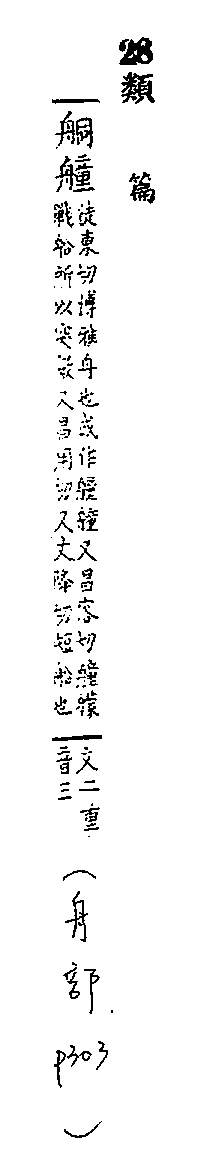 28
類篇
䑸艟
徒東切博雅舟也或作艟艟又昌容切艟艨
戰船所以突敵又昌用切又丈降切短船也
文二重
音三
(舟部.p303)